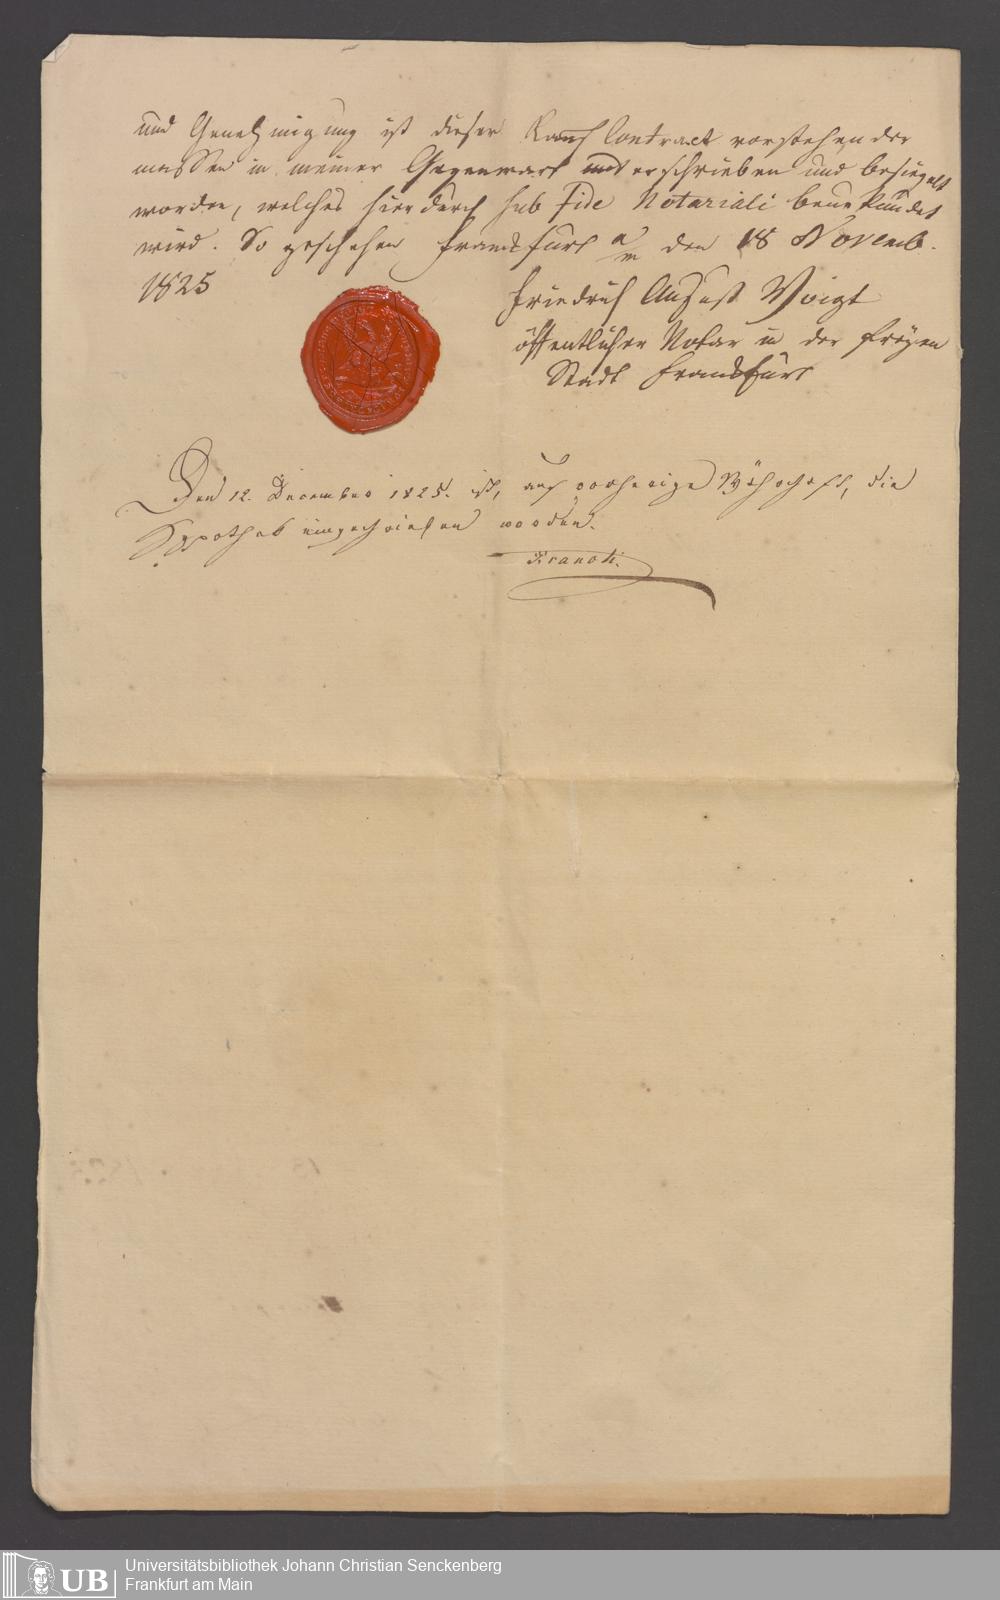 und Genehmigung ist dieser Kauf Contract vorstehender
massen in meiner Gegenwart unterschrieben und besiegelt
worden, welches hierdurch sub fide Notariali beurkundet
wird. So geschehen Frankfurt a/m den 18 Novemb.
1825
Friedrich August Voigt
öffentlicher Notar in der freyen
Stadt Frankfurt
Den 12. December 1825. ist, auf vorherige Währschaft, die
Hypothek eingeschrieben worden.
UB
Universitätsbibliothek Johann Christian Senckenberg
Frankfurt am Main